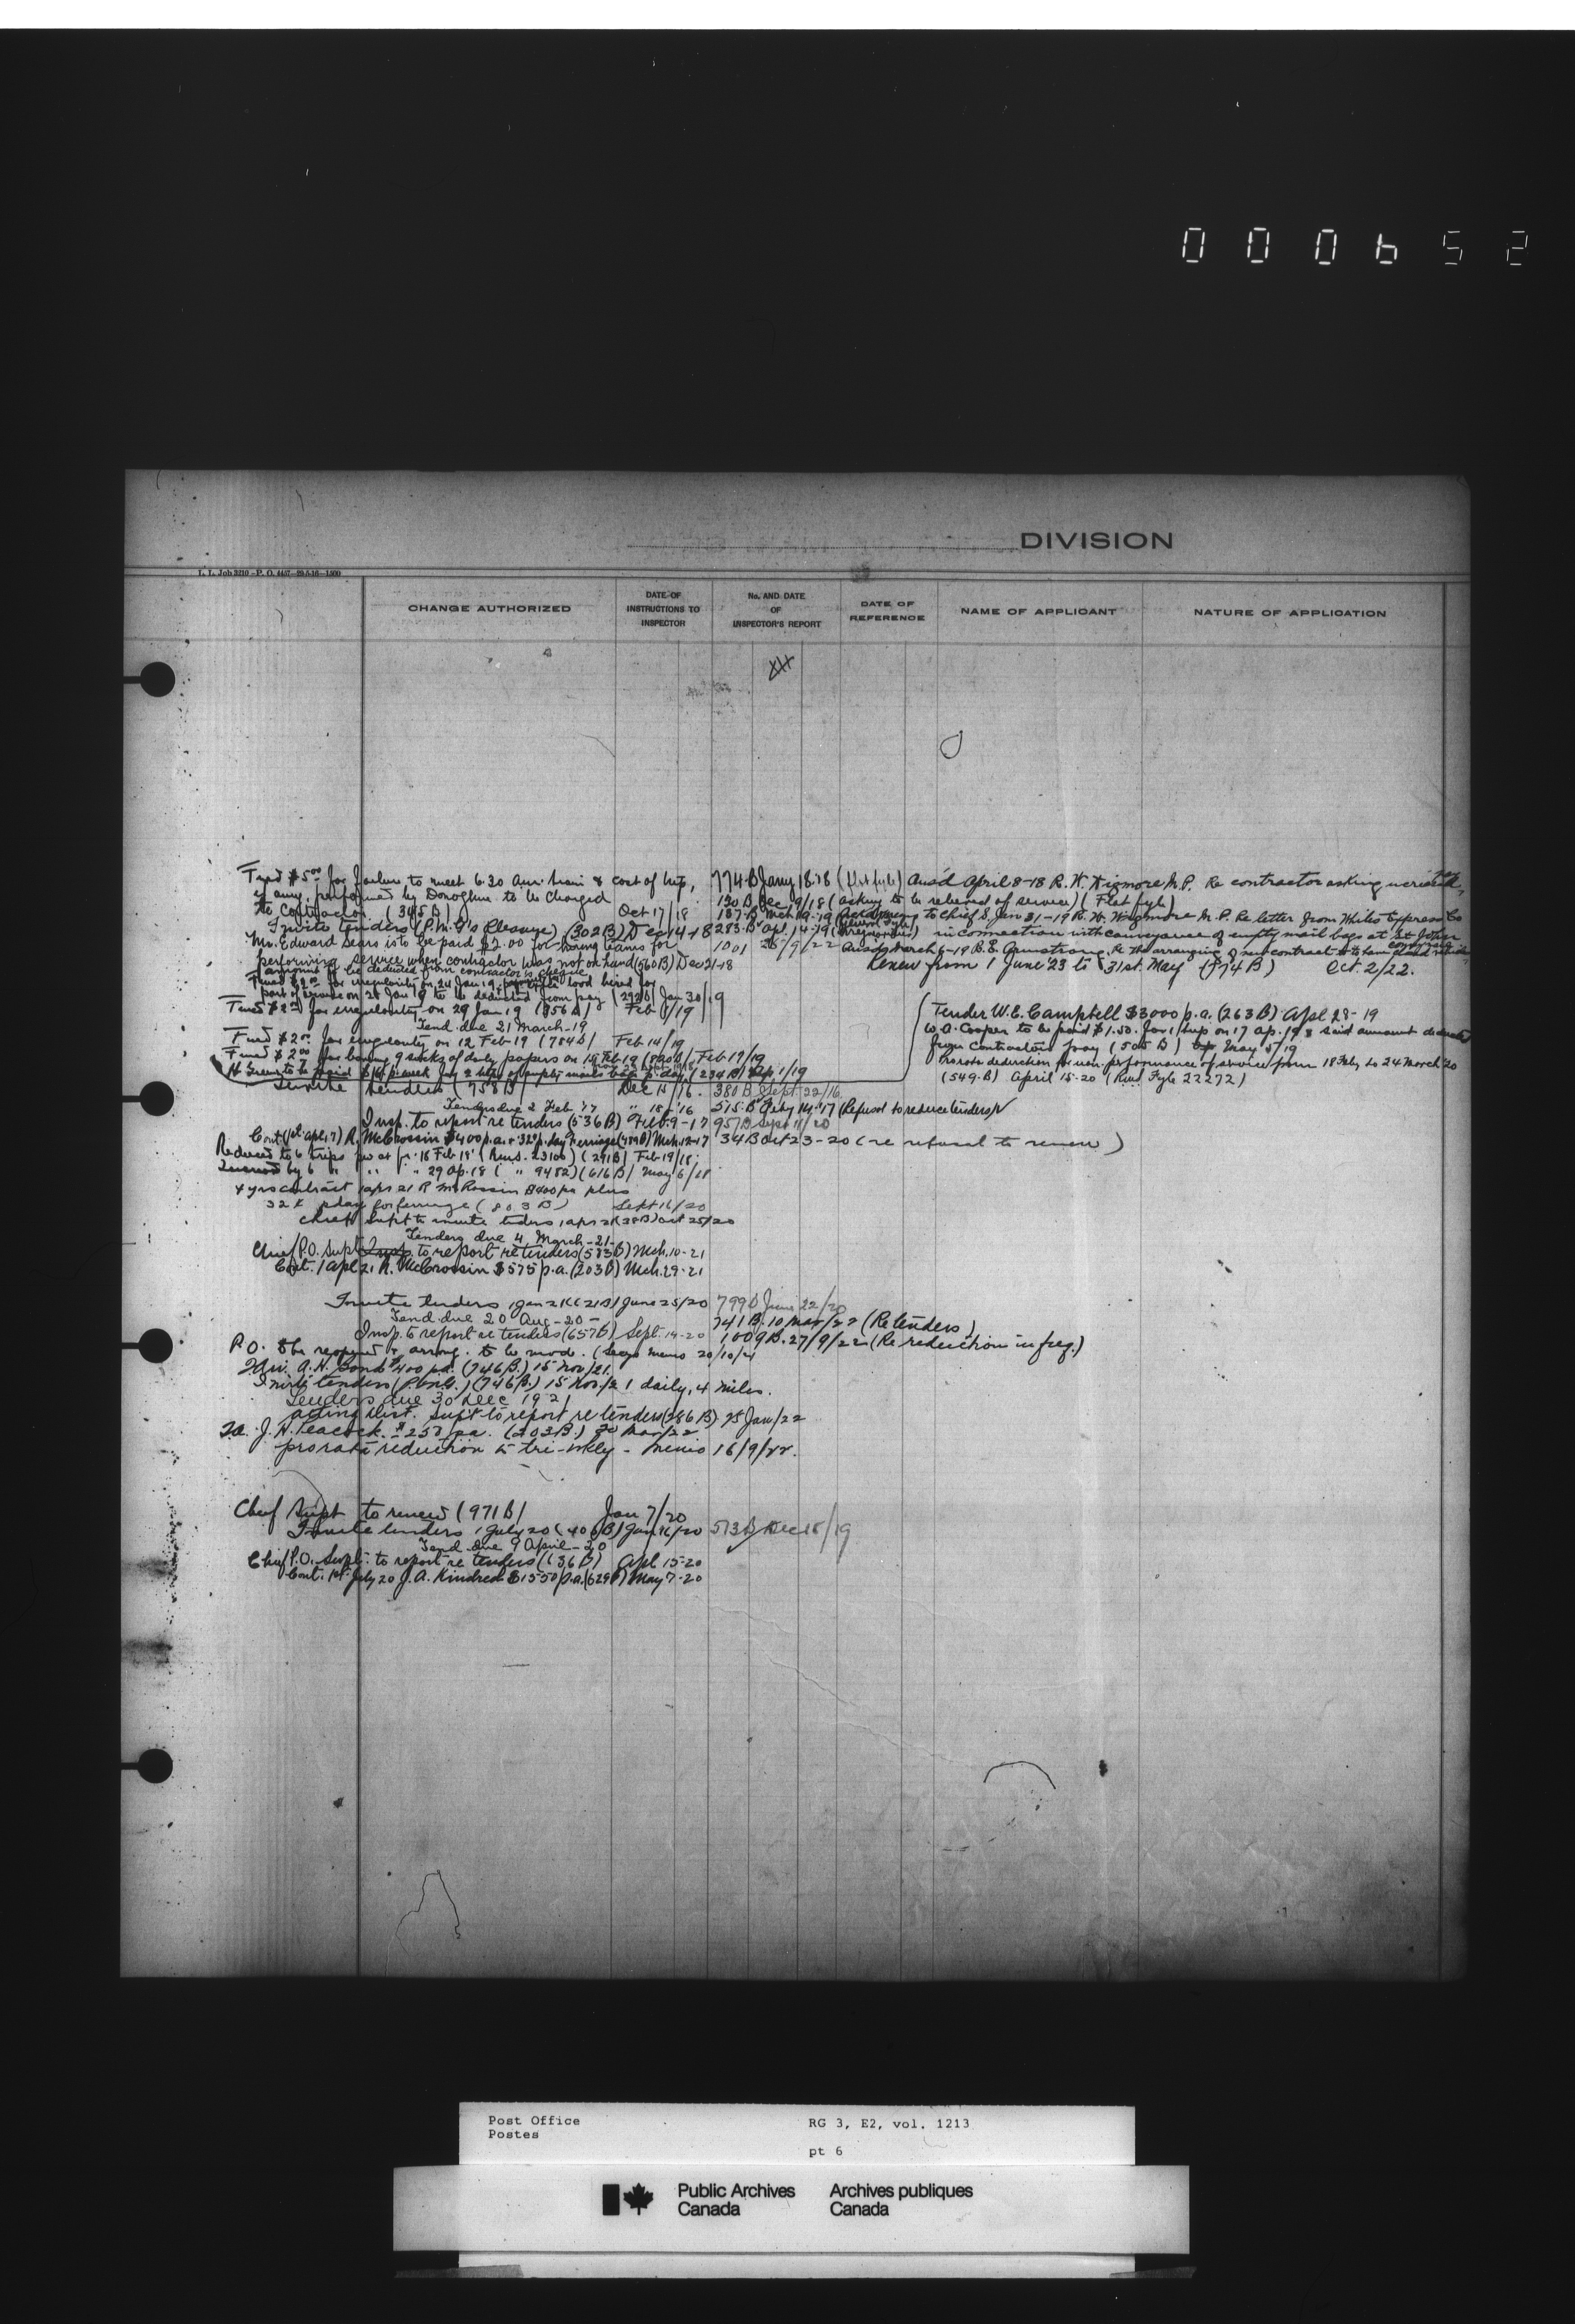 000652
DIVISION
L. L. Job 3210-P. O. 4457-29-5-16-1500
CHANGE AUTHORIZED
DATE OF INSTRUCTIONS TO INSPECTOR
No. AND DATE OF INSPECTOR'S REPORT
DATE OF REFERENCE
NAME OF APPLICANT
NATURE OF APPLICATION
Fined $5.00 for failure to meet 6.30 am. train & cost of trip, 774.B Jany 18.18 Ansd April 8-18 R. W. Wigmore M.P. Re contractor asking increased
if any, performed by Donoghue to be charged 130 B Dec 9/18 (asking to be relieved of service) (Flat fyle)
to Contractor. (345 B) Oct 17/18 187.B Mch 19-19 to Chief S. Jan 31-19 R. W. Wigmore M.P. Re letter from Express Co
Invite tenders (P.M.G's Please) (302B) Dec 14-18 283.B Ap. 14-19 in connection with conveyance of empty mail bags at St John
Mr. Edward Sears is to be paid $2.00 for having teams for 1001 25/9/22 Ansd March 6-19 B.E. Armstrong. Re the arranging of new contract
performing service when contractor was not on hand (560 B) Dec 21-18 Renew from 1 June '23 to 31st. May (574 B) Oct. 2/22.
amount to be deducted from contractor's cheque
Fined $2.00 for irregularity on 24 Jan 19 hired for
part of service on 28 Jan 19 to be deducted from pay (292 B) Jan 30/19
Fined $2.00 for irregularity on 29 Jan 19 (356 B) Feb 8/19
Tend. due 21 March-19
Fined $2.00 for irregularity on 12 Feb-19 (784 B) Feb 14/19
Fined $2.00 for leaving 9 sacks of daily papers on 15 Feb 19 (820 B) Feb 19/19
to be paid p. week for 2 trips of empty mail bags p. day (234 B) Sep 1/19
Tender W. E. Campbell $3000 p.a. (263 B) Apl 28-19
W. A. Cooper to be paid $1.50. for 1 trip on 17 ap. 19 & said amount deducted
from Contractors pay (505 B) May 5/19
Prorata deduction for non-performance of service from 18 Feby to 24 March 20
(549.B) April 15-20 (Fyle 22272)
Invite tenders (758 B) Dec 14/16. 380 B Sept. 22/16
Tenders due 2 Feb '17 " 18-'16 515.B Feby 14.'17 (Refusal to reduce tenders)
Insp. to report re tenders (536 B) Feb. 9-17 957 B Sept 11/20
Cont. (1st apl, 17) R. McCrossin $400 p.a. + 32c p. day ferriage (489 B) Mch. 12-17 34 B Oct 23-20 (re refusal to renew)
Reduced to 6 trips pw at fr. 18 Feb 18 (23100) (291 B) Feb 19/18
Increased by 6 " " " 29 Ap. 18 ( " 9482) (616 B) May 6/18
4 yrs contract 1 apr 21 R McCrossin $400 pa plus
32c pday for ferriage (803 B) Sept 16/20
Chief Supt to invite tenders 1 apr 21 (38 B) Oct 25/20
Tenders due 4 March-21-
Chief P.O. Supt. Insp. to report re tenders (583 B) Mch. 10-21
Cont. 1 Apl 21 R. McCrossin $575 p.a. (203 B) Mch. 29-21
Invite tenders 1 Jan 21 (21 B) June 25/20 799 B June 22/20
Tend. due 20 Aug-20- 741 B. 10 Mar/22 (Re tenders)
Insp. to report re tenders (657 B) Sept. 14-20 1009 B. 27/9/22 (Re reduction in freq.)
P.O. to be reopened & arrang. to be mod. (Secys memo 20/10/21
A. H. Bond $400 pa. (746 B.) 15 Nov/21.
Invite tenders (P. Bills.) (746 B.) 15 Nov./21 daily, 4 miles.
Tenders due 30 Dec 1921
Acting Dist. Supt to report re tenders (286 B) 25 Jan/22
J. H. Peacock. $257 pa. (203 B.) 20 Mar/22
prorata reduction to tri-wkly - Memo 16/9/22.
Chief Supt to renew (971 B) Jan 7/20
Invite tenders 1 July 20 (406 B) Jan 16/20 573 B Dec 18/19
Tend. due 9 April-20
Chief P.O. Supt. to report re tenders (636 B) Apl 15-20
Cont. 1st July 20 J. A. Kindred $1550 p.a. (629 B) May 7-20
Post Office
Postes
RG 3, E2, vol. 1213
pt 6
Public Archives Canada
Archives publiques Canada